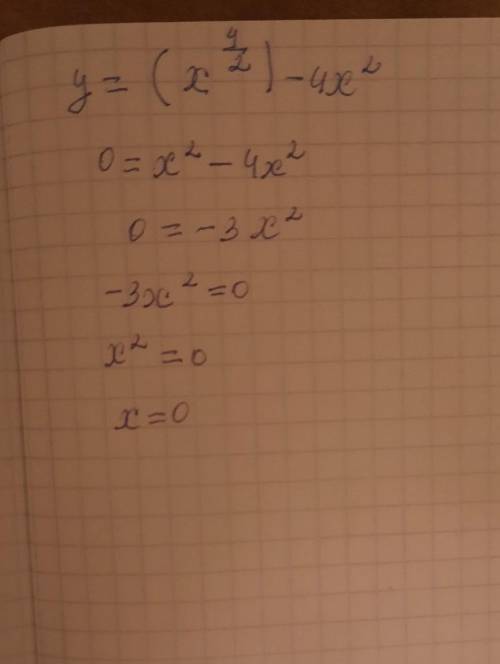 y = (x^(4/2)) - 4x²
0 = x² - 4x²
0 = -3x²
-3x² = 0
x² = 0
x = 0